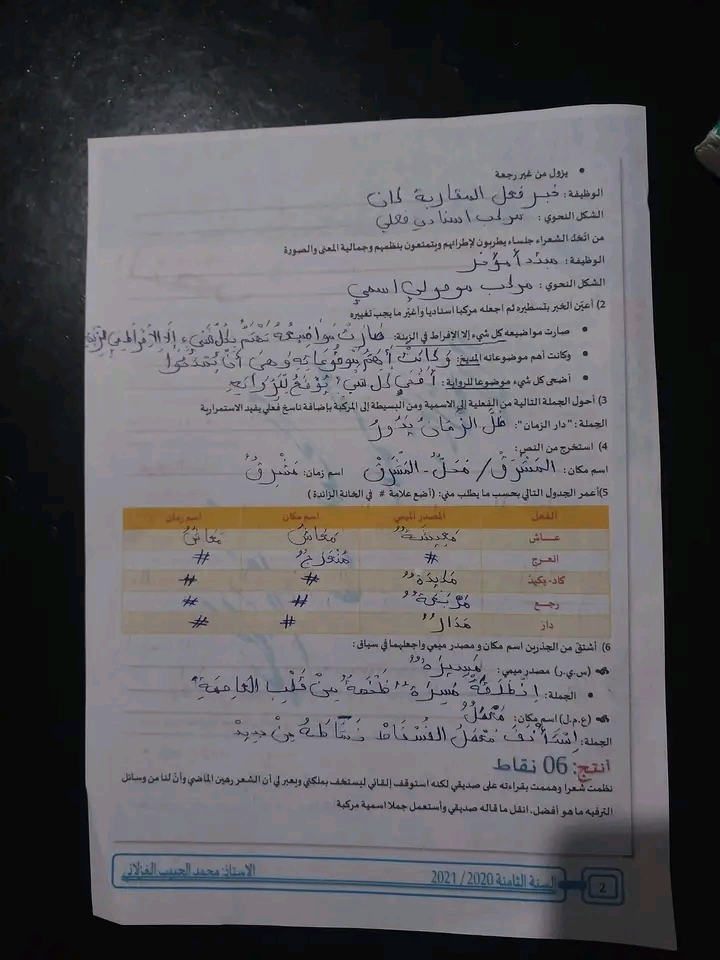 يزول من غير رجعة
الوظيفة: خبر فعل المقاربة كان
الشكل النحوي: مركب اسنادي فعلي
من اتخذ الشعراء جلساء يطربون لإطرائهم ويتمتعون بنظمهم وجمالية المعنى والصورة
الوظيفة: مبتدأ مؤخر
الشكل النحوي: مركب موصولي اسمي
2) أعيّن الخبر بتسطيره ثم اجعله مركبا اسناديا وأغيّر ما يجب تغييره
صارت مواضيعه كل شيء إلا الإفراط في الزينة: صارت مواضيعه تهتم بكل شيء إلا الإفراط في الزينة
وكانت أهم موضوعاته المديح: وكانت أهم موضوعاته وهي أن يمتدحوا
أضحى كل شيء موضوعا للرواية: أضحى كل شيء
3) أحول الجملة التالية من الفعلية إلى الاسمية ومن البسيطة إلى المركبة بإضافة ناسخ فعلي يفيد الاستمرارية
الجملة: "دار الزمان": ظل الزمان يدور
4) استخرج من النص:
اسم مكان: المشرق / محل - المشرق اسم زمان: مشرق
5) أعمر الجدول التالي بحسب ما يطلب مني: (أضع علامة # في الخانة الزائدة)
الفعل المصدر الميمي اسم مكان اسم زمان
عاش معيشة معاش معاش
انعرج # منعرج #
كاد-يكيد مكيدة # #
رجع # #
دار مدار # #
6) أشتق من الجذرين اسم مكان ومصدر ميمي واجعلهما في سياق:
(س.ي.ر) مصدر ميمي: مسيرة
الجملة: انطلقت مسيرة ضخمة من قلب العاصمة
(ع.م.ل) اسم مكان: معمل
الجملة: استأنف معمل الفسفاط نشاطه من جديد
أنتج: 06 نقاط
نظمت شعرا وهممت بقراءته على صديقي لكنه استوقف إلقائي ليستخف بملكتي ويعبر لي أن الشعر رهين الماضي وأن لنا من وسائل
الترفيه ما هو أفضل. انقل ما قاله صديقي وأستعمل جملا اسمية مركبة
2 السنة الثامنة 2020/ 2021 الاستاذ: محمد الحبيب الغزلاني